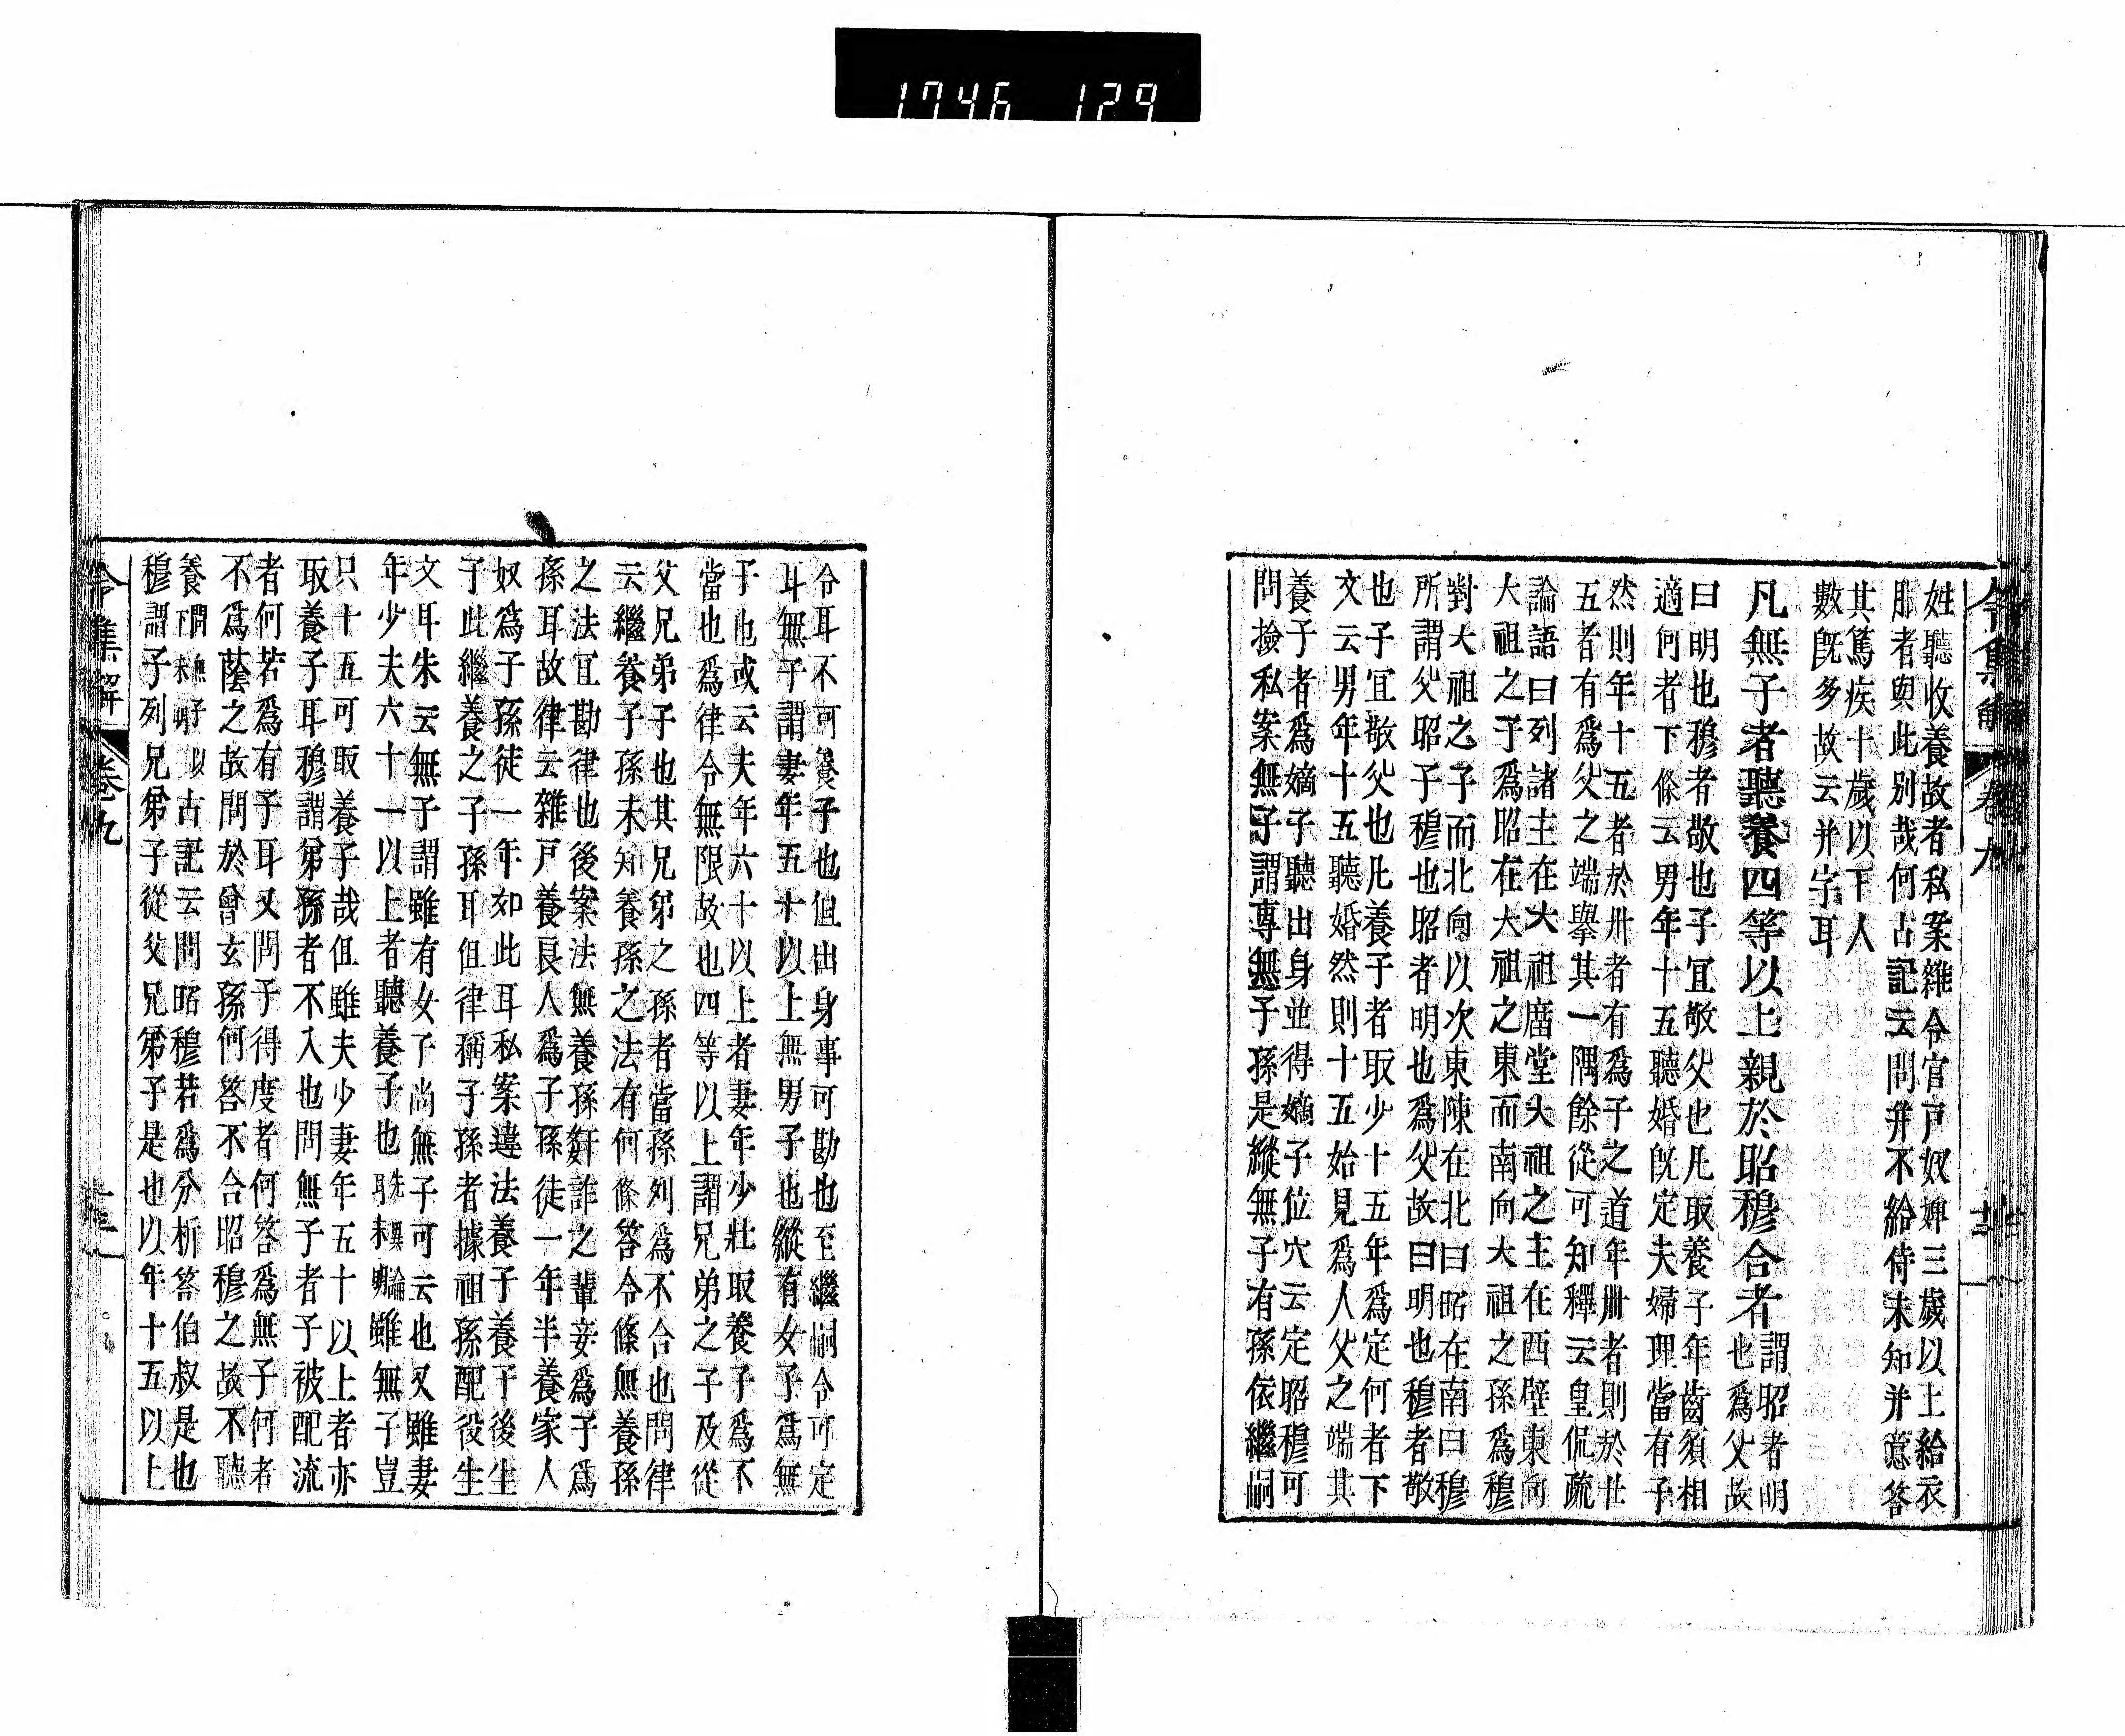 1746 129
令集解 卷九
姓聽收養故者私案雜令官戸奴婢三歲以上給衣
服者與此別哉何古記云問并不給侍未知并意答
其篤疾十歲以下人
數既多故云并字耳
凡無子者聽養四等以上親於昭穆合者
謂昭者明
也爲父故
曰明也穆者敬也子宜敬父也凡取養子年齒須相
適何者下條云男年十五聽婚既定夫婦理當有子
然則年十五者於卅者有爲子之道年卅者則於卋
五者有爲父之端擧其一隅餘從可知釋云皇侃疏
論語曰列諸主在大祖庿堂大祖之主在西壁東向
大祖之子爲昭在大祖之東而南向大祖之孫爲穆
對大祖之子而北向以次東陳在北曰昭在南曰穆
所謂父昭子穆也昭者明也爲父故曰明也穆者敬
也子宜敬父也凡養子者取少十五年爲定何者下
文云男年十五聽婚然則十五始見爲人父之端其
養子者爲嫡子聽出身並得嫡子位穴云定昭穆可
問撿私案無子謂專無子孫是縱無子有孫依繼嗣
令耳不可養子也但出身事可勘也至繼嗣令可定
耳無子謂妻年五十以上無男子也縱有女子爲無
子也或云夫年六十以上者妻年少壯取養子爲不
當也爲律令無限故也四等以上謂兄弟之子及從
父兄弟子也其兄弟之孫者當孫列爲不合也問律
云繼養子孫未知養孫之法有何條答令條無養孫
之法宜勘律也後案法無養孫姧詐之輩妾爲子爲
孫耳故律云雜戸養良人爲子孫徒一年半養家人
奴爲子孫徒一年如此耳私案違法養子養子後生
子此繼養之子孫耳但律稱子孫者據祖孫配役生
文耳朱云無子謂雖有女子尚無子可云也又雖妻
年少夫六十一以上者聽養子也 雖無子豈
只十五可取養子哉但雖夫少妻年五十以上者亦
取養子耳穆謂弟孫者不入也問無子者子被配流
者何若爲有子耳又問子得度者何答爲無子何者
不爲蔭之故問於曾玄孫何答不合昭穆之故不聽
養 問無子以
下未明 古記云問昭穆若爲分析答伯叔是也
穆謂子列兄弟子從父兄弟子是也以年十五以上
令集解 卷九